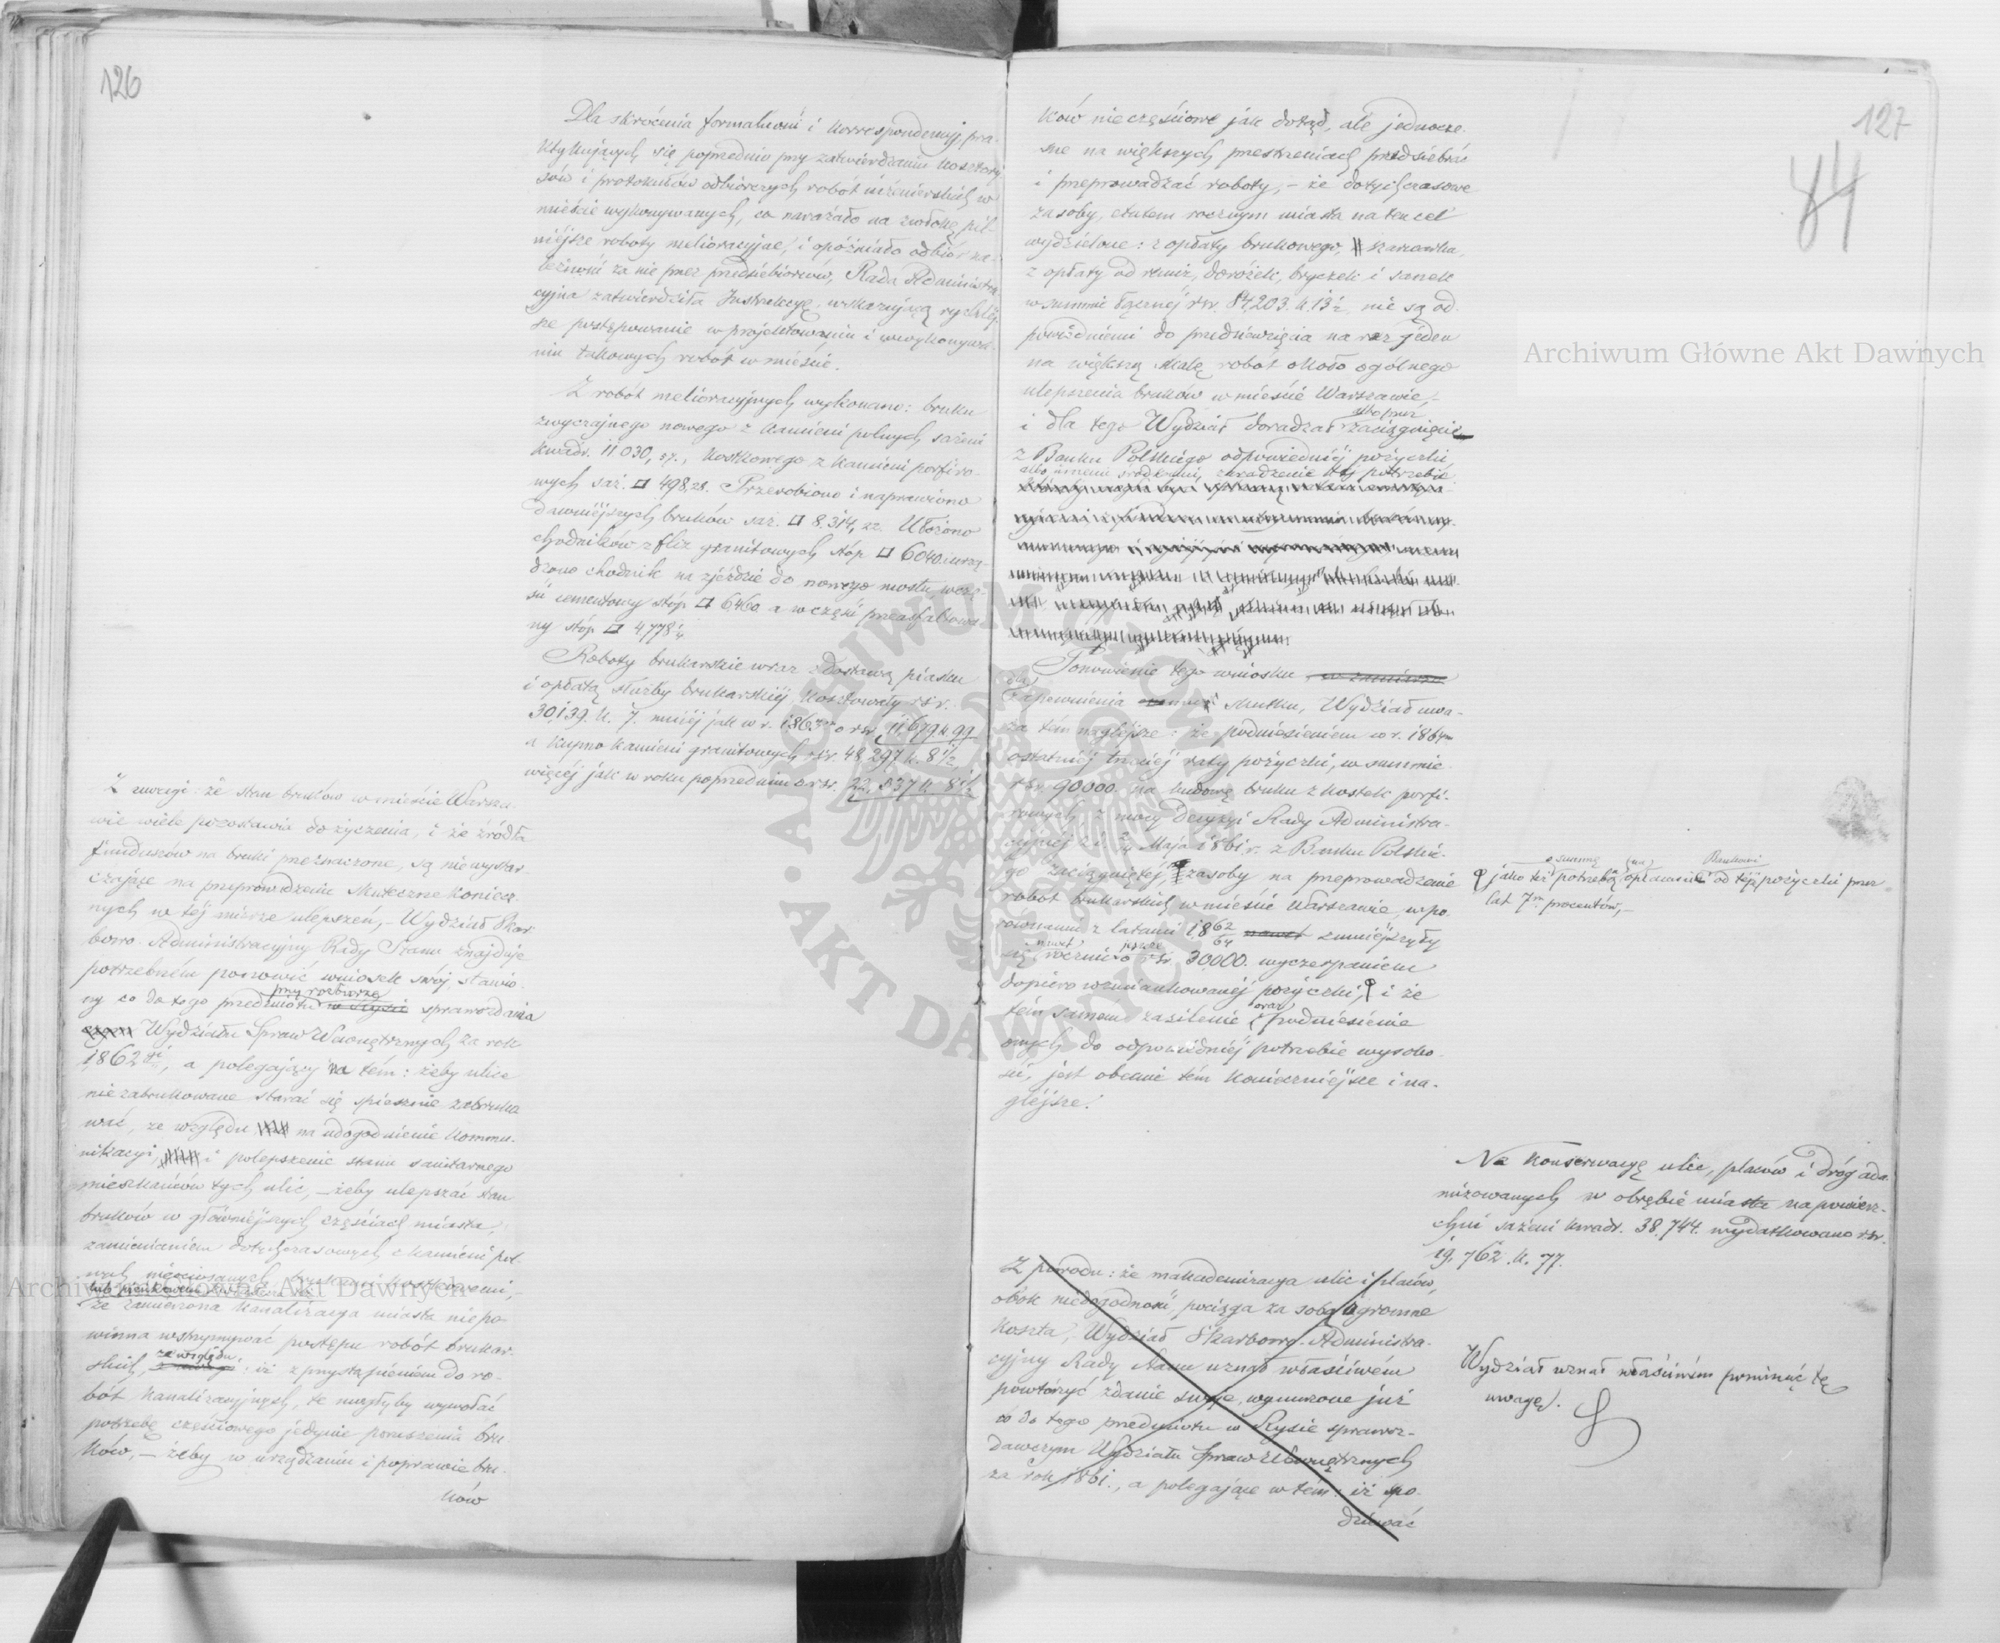 126
Dla skrócenia formalności i korrespondencyj, pra-
ktykujących się poprzednio przy zatwierdzaniu kosztory
sów i protokułów odbiorczych robót inżenierskich w
mieście wykonywanych, co narażało na zwłokę pil
niejsze roboty melioracyjne, i opóźniało odbiór na-
leżności za nie przez przedsiębiorców, Rada Administra
cyjna zatwierdziła Instrukcyę, wskazującą rychlej-
sze postępowanie w projektowaniu i wykonywa-
niu takowych robót w mieście.
Z robót melioracyjnych wykonano: bruku
zwyczajnego nowego z kamieni polnych sążni
kwadr. 11 030, 27., kostkowego z kamieni porfiro-
wych saż. □ 498,28. Przerobiono i naprawiono
dawniejszych bruków saż. □ 8.314, 22. Ułożono
chodników z fliz granitowych stóp □ 6040. urzą-
dzono chodnik na zjeździe do nowego mostu w czę-
ści cementowy stóp □ 6460 a w części przeasfaltowa
ny stóp □ 4778 1/4
Roboty brukarskie wraz z dostawą piasku
i opłatą służby brukarskiej kosztowały rsr.
30,139. k. 7. mniej jak w r. 1862 o rsr. 11 679 k 99
a kupno kamieni granitowych rsr. 48,297 k. 8 1/2
więcej jak w roku poprzednim o rsr. 22.837 k 8 1/2
Z uwagi: że stan bruków w mieście Warsza-
wie wiele pozostawia do życzenia, i że źródła
funduszów na bruki przeznaczone, są niewystar-
czające na przeprowadzenie skuteczne koniecz-
nych w tej mierze ulepszeń, – Wydział Skar-
bowo-Administracyjny Rady Stanu znajduje
potrzebném ponowić wniosek swój, stawio-
przy rozbiorze
ny co do tego przedmiotu w Rysie sprawozdania
Wydziału Spraw Wewnętrznych za rok
1862gi, a polegający na tém: żeby ulice
niezabrukowane starać się spiesznie zabruko
wać, ze względu na udogodnienie kommu-
nikacyi, i polepszenie stanu sanitarnego
mieszkańców tych ulic, – żeby ulepszać stan
bruków w główniejszych częściach miasta,
zamienianiem dotychczasowych z kamieni pol-
nych nieciosanych brukami kostkowemi,
że zamierzona kanalizacya miasta niepo-
winna wstrzymywać postępu robót brukar-
ze względu
skich, z uwagi: iż z przystąpieniem do ro-
bót kanalizacyjnych, te mogłyby wywołać
potrzebę częściowego jedynie poruszenia bru
ków, – żeby w urządzaniu i poprawie bru-
ków
127
84
ków nieczęściowo jak dotąd, ale jednocze-
sne na większych przestrzeniach przedsiębrać
i przeprowadzać roboty, – że dotychczasowe
zasoby, etatem rocznym miasta na ten cel
wydzielone: z opłaty brukowego, szarwarku,
z opłaty od remiz, dorożek, bryczek i sanek
w summie łącznej rsr. 84,203. k. 13 1/2, nie są od-
powiedniemi do przedsięwzięcia na raz jeden
na większą skalę robót około ogólnego
ulepszenia bruków w mieście Warszawie,
albo przez
i dla tego Wydział doradzał zaciągnięcie
z Banku Polskiego odpowiedniej pożyczki
albo innemi środkami, zaradzenie tej potrzebie
Ponowienie tego wniosku,
dla
zapewnienia skutku, Wydział uwa-
ża tém naglejsze: że podniesieniem w r. 1864m
ostatniej trzeciej raty pożyczki, w summie
rsr. 90000. na budowę bruku z kostek porfi-
rowych, z mocy decyzyi Rady Administra-
cyjnej z d. 2/14 Maja 1861.r. z Banku Polskie-
go zaciągniętej, zasoby na przeprowadzenie
robót brukarskich w mieście Warszawie, w po-
równaniu z latami 1862/64 nawet zmniejszyły
nawet jeszcze
się rocznie o rsr. 30000. wyczerpaniem
dopiero wzmiankowanej pożyczki, i że
oraz
tém samem zasilenie i podniesienie
onych do odpowiedniej potrzebie wysoko-
ści, jest obecnie tém konieczniejsze i na-
glejsze.
o summę na Bankowi
jako też potrzebą opłacanie od tejże pożyczki przez
lat 7m procentów, –
Na konserwacyę ulic, placów i dróg ada-
mizowanych w obrębie miasta na powierz-
chni sążeni kwadr. 38.744. wydatkowano rsr.
19,762. k. 77.
Z powodu: że makademizacya ulic i placów,
obok niedogodności, pociąga za sobą ogromne
koszta, Wydział Skarbowo-Administra-
cyjny Rady Stanu uznał właściwém
powtórzyć zdanie swoje, wynurzone już
co do tego przedmiotu w Rysie sprawoz-
dawczym Wydziału Spraw Wewnętrznych
za rok 1861., a polegające w tém: iż spo-
dziewać
Wydział uznał właściwém pominąć tę
uwagę.
Archiwum Główne Akt Dawnych
Archiwum Główne Akt Dawnych
ARCHIWUM GŁÓWNE AKT DAWNYCH